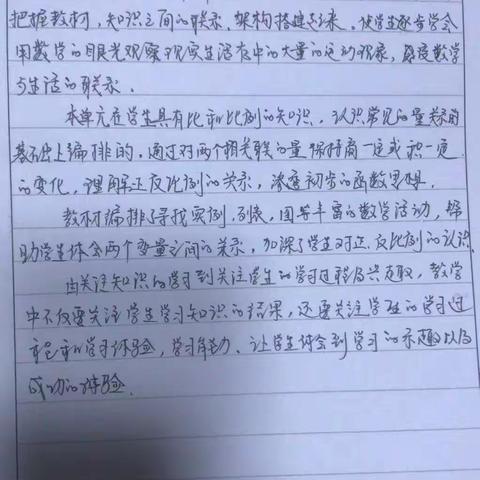 把握教材，知识之间的联系、架构搭建起来。使学生逐步学会
用数学的眼光观察现实生活存中的大量的运动现象，感受数学
与生活的联系。
本单元在学生具有比和比例的知识，认识常见的量关系的
基础上编排的。通过对两个相关联的量保持商一定或积一定
的变化，理解正反比例的关系，渗透初步的函数思想。
教材编排了寻找实例、列表，图等丰富的数学活动，帮
助学生体会两个变量之间的关系，加深了学生对正、反比例的认识。
由关注知识的学习到关注学生的学习过程及兴趣，教学
中不仅要关注学生学习知识的结果，还要关注学生的学习过
程和学习体验，学习能动、让学生体会到学习的乐趣以及
成功的体验。